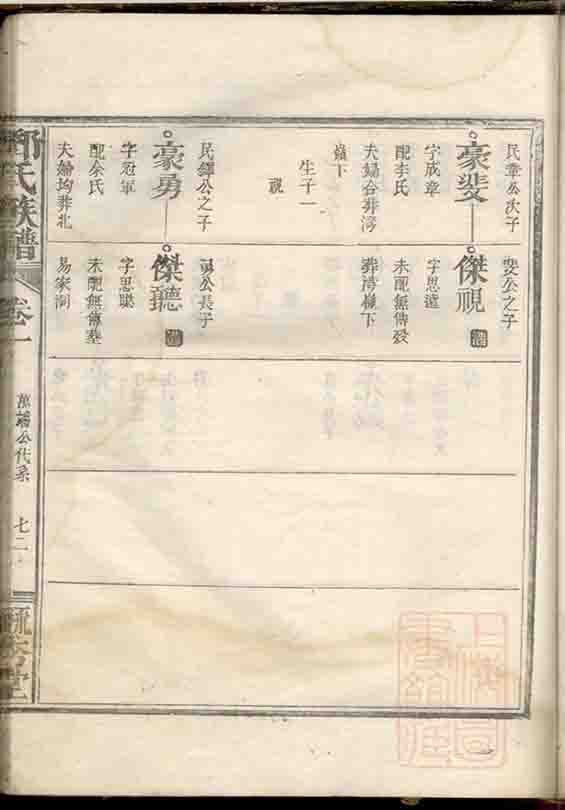 民章公次子
豪斐
字成章
配李氏
夫婦合葬湾
嶺下
生子一
視
民鐸公之子
豪勇
字冠軍
配余氏
夫婦均葬北
斐公之子
傑視
字思遠
未配無傳歿
葬湾嶺下
勇公長子
傑聽
字思聰
未配無傳塟
易家洞
氏族譜
卷一
萬
公代系
七二
堂